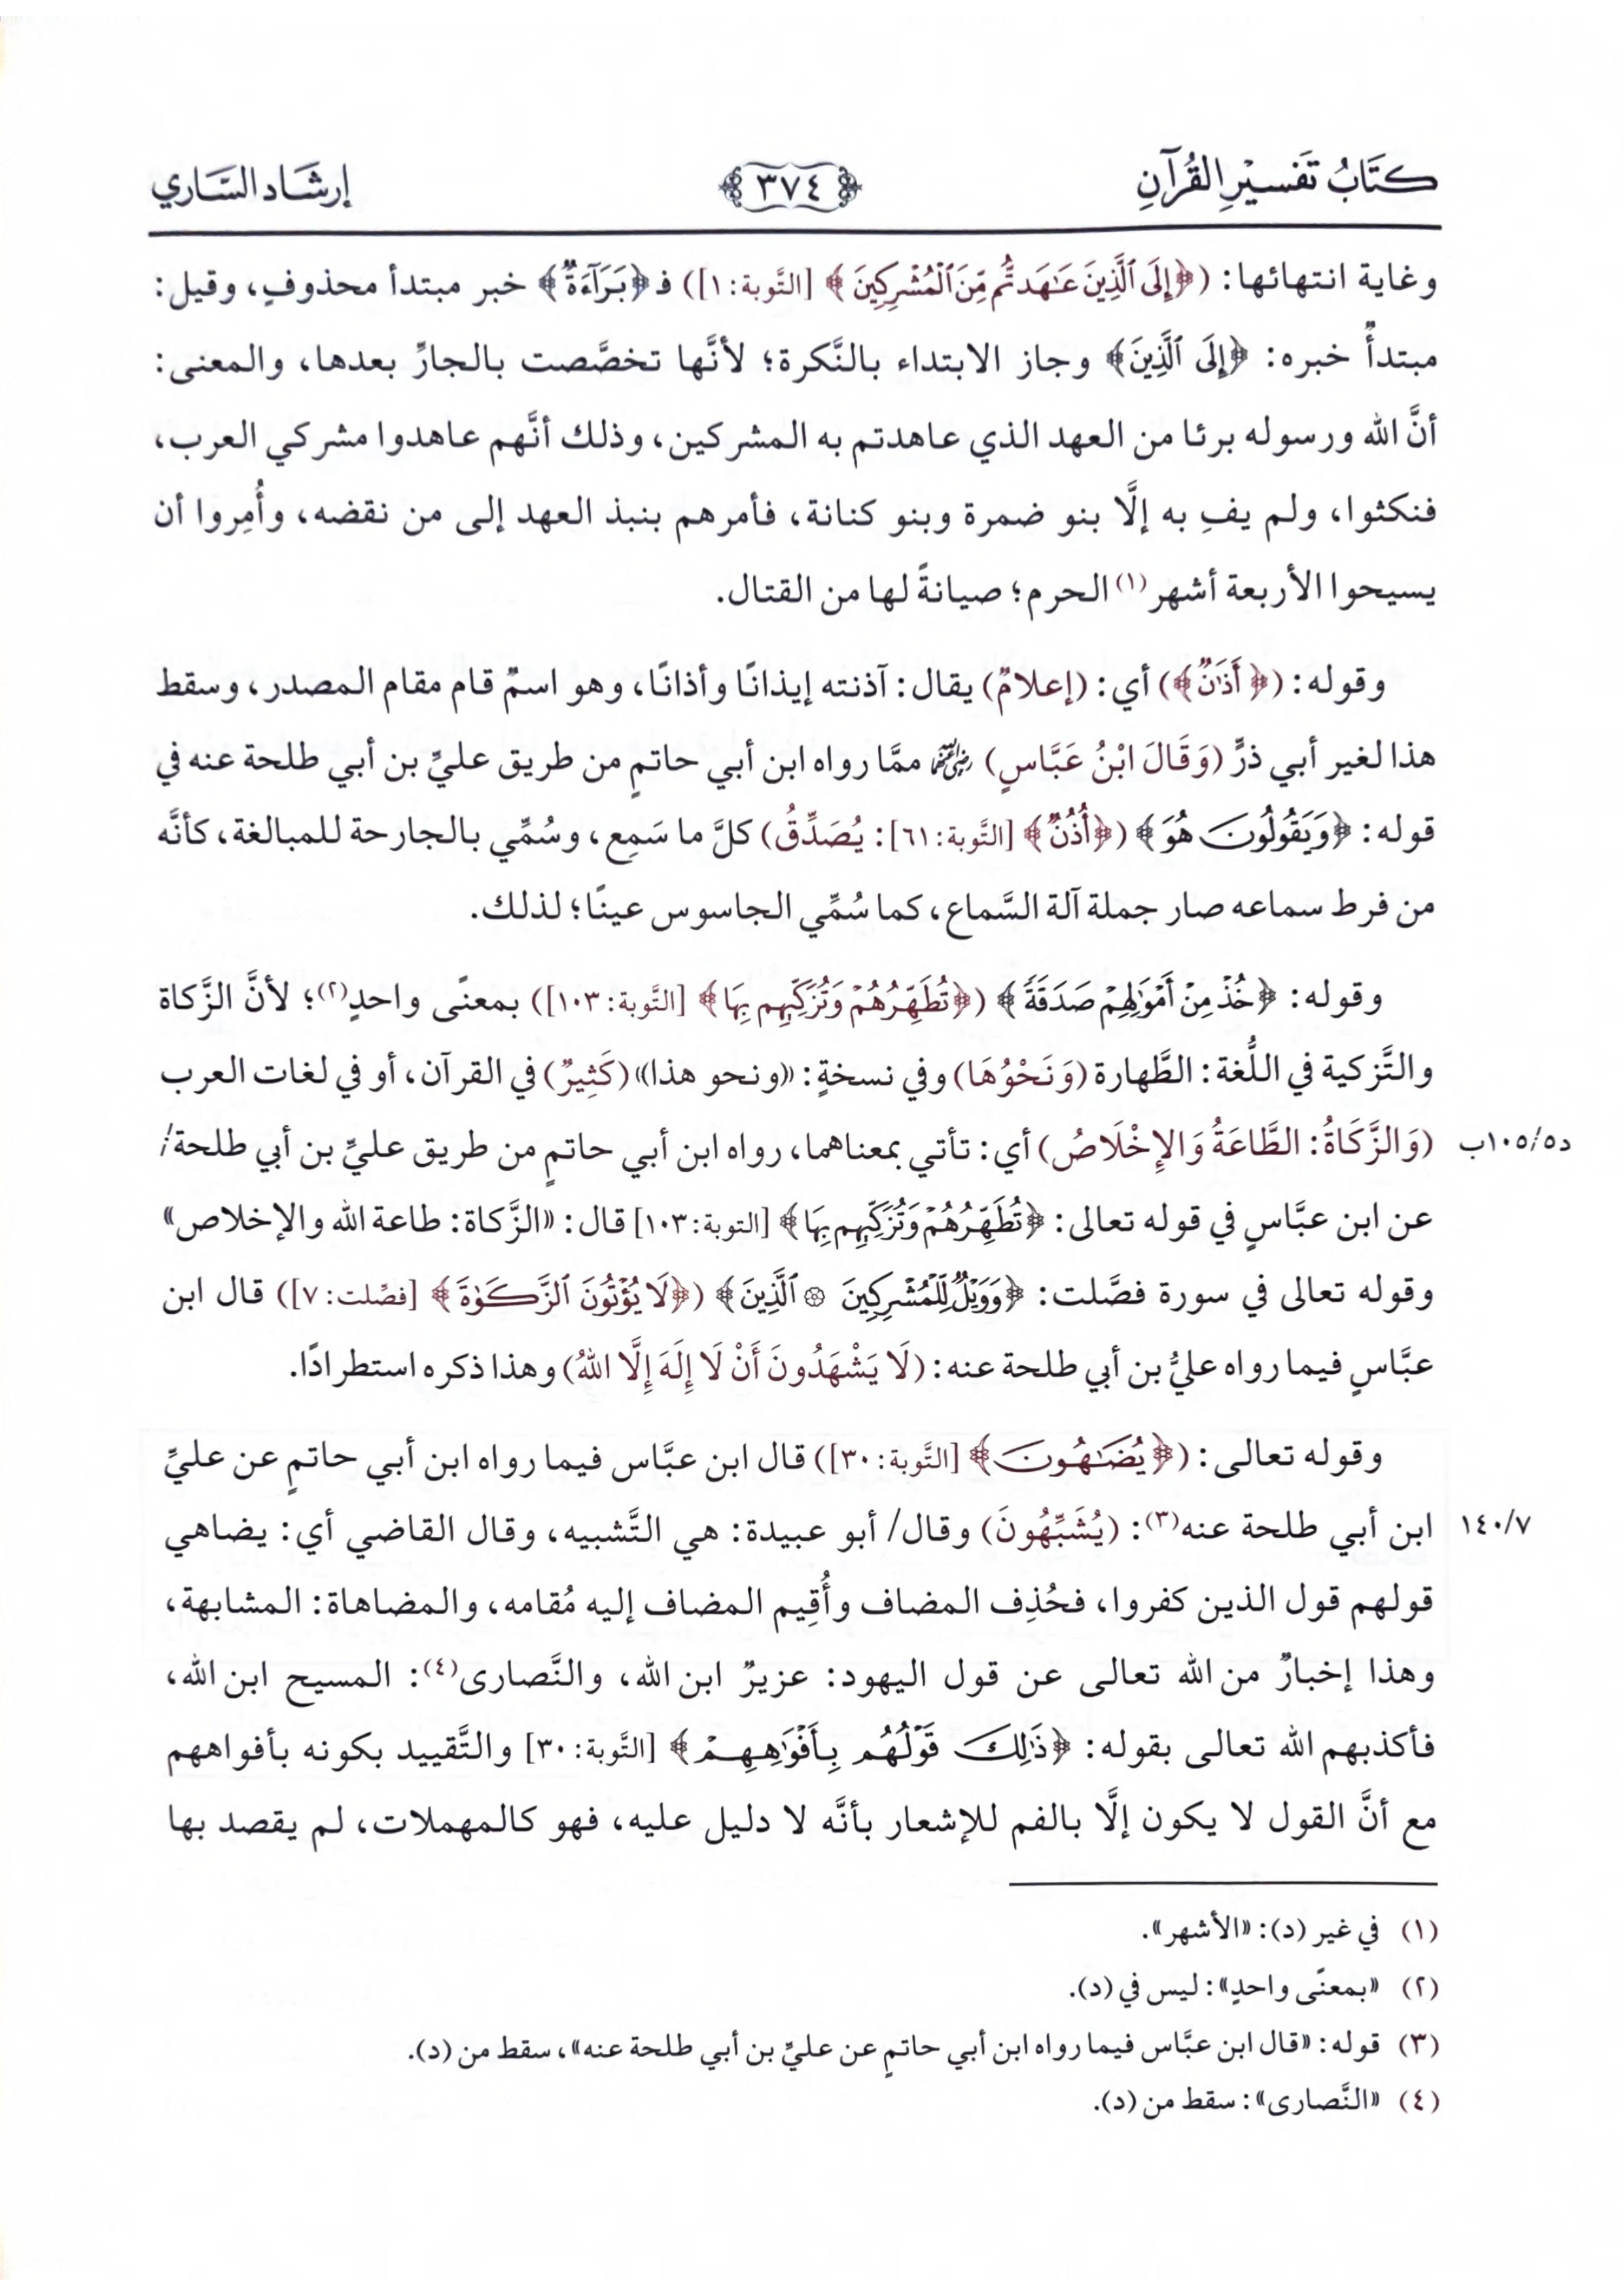 كتَابُ تَفسيْرِ القُرآنِ
٣٧٤
إرشَاد السَّاري
وغاية انتهائها: (﴿إِلَى ٱلَّذِينَ عَٰهَدتُّم مِّنَ ٱلْمُشْرِكِينَ﴾ [التَّوبة: ١]) فـ﴿بَرَآءَةٌ﴾ خبر مبتدأ محذوفٍ، وقيل:
مبتدأٌ خبره: ﴿إِلَى ٱلَّذِينَ﴾ وجاز الابتداء بالنَّكرة؛ لأنَّها تخصَّصت بالجارِّ بعدها، والمعنى:
أنَّ الله ورسوله برئا من العهد الذي عاهدتم به المشركين، وذلك أنَّهم عاهدوا مشركي العرب،
فنكثوا، ولم يفِ به إلَّا بنو ضمرة وبنو كنانة، فأمرهم بنبذ العهد إلى من نقضه، وأُمِروا أن
يسيحوا الأربعة أشهر(١) الحرم؛ صيانةً لها من القتال.
وقوله: (﴿أَذَٰنٌ﴾) أي: (إعلامٌ) يقال: آذنته إيذانًا وأذانًا، وهو اسمٌ قام مقام المصدر، وسقط
هذا لغير أبي ذرٍّ (وَقَالَ ابْنُ عَبَّاسٍ) رضي الله عنهما ممَّا رواه ابن أبي حاتمٍ من طريق عليِّ بن أبي طلحة عنه في
قوله: ﴿وَيَقُولُونَ هُوَ﴾ (﴿أُذُنٌ﴾ [التَّوبة: ٦١]: يُصَدِّقُ) كلَّ ما سَمِع، وسُمِّي بالجارحة للمبالغة، كأنَّه
من فرط سماعه صار جملة آلة السَّماع، كما سُمِّي الجاسوس عينًا؛ لذلك.
وقوله: ﴿خُذْ مِنْ أَمْوَٰلِهِمْ صَدَقَةً﴾ (﴿تُطَهِّرُهُمْ وَتُزَكِّيهِم بِهَا﴾ [التَّوبة: ١٠٣]) بمعنًى واحدٍ(٢)؛ لأنَّ الزَّكاة
والتَّزكية في اللُّغة: الطَّهارة (وَنَحْوُهَا) وفي نسخةٍ: «ونحو هذا» (كَثِيرٌ) في القرآن، أو في لغات العرب
(وَالزَّكَاةُ: الطَّاعَةُ وَالإِخْلَاصُ) أي: تأتي بمعناهما، رواه ابن أبي حاتمٍ من طريق عليِّ بن أبي طلحة/ د٥/١٠٥ب
عن ابن عبَّاسٍ في قوله تعالى: ﴿تُطَهِّرُهُمْ وَتُزَكِّيهِم بِهَا﴾ [التوبة: ١٠٣] قال: «الزَّكاة: طاعة الله والإخلاص»
وقوله تعالى في سورة فصَّلت: ﴿وَوَيْلٌ لِّلْمُشْرِكِينَ ۞ ٱلَّذِينَ﴾ (﴿لَا يُؤْتُونَ ٱلزَّكَوٰةَ﴾ [فصِّلت: ٧]) قال ابن
عبَّاسٍ فيما رواه عليُّ بن أبي طلحة عنه: (لَا يَشْهَدُونَ أَنْ لَا إِلَهَ إِلَّا اللهُ) وهذا ذكره استطرادًا.
وقوله تعالى: (﴿يُضَٰهُونَ﴾ [التَّوبة: ٣٠]) قال ابن عبَّاس فيما رواه ابن أبي حاتمٍ عن عليِّ
ابن أبي طلحة عنه(٣): (يُشَبِّهُونَ) وقال/ أبو عبيدة: هي التَّشبيه، وقال القاضي أي: يضاهي ١٤٠/٧
قولهم قول الذين كفروا، فحُذِف المضاف وأُقِيم المضاف إليه مُقامه، والمضاهاة: المشابهة،
وهذا إخبارٌ من الله تعالى عن قول اليهود: عزيرٌ ابن الله، والنَّصارى(٤): المسيح ابن الله،
فأكذبهم الله تعالى بقوله: ﴿ذَٰلِكَ قَوْلُهُم بِأَفْوَٰهِهِمْ﴾ [التَّوبة: ٣٠] والتَّقييد بكونه بأفواههم
مع أنَّ القول لا يكون إلَّا بالفم للإشعار بأنَّه لا دليل عليه، فهو كالمهملات، لم يقصد بها
(١) في غير (د): «الأشهر».
(٢) «بمعنًى واحدٍ»: ليس في (د).
(٣) قوله: «قال ابن عبَّاس فيما رواه ابن أبي حاتمٍ عن عليِّ بن أبي طلحة عنه»، سقط من (د).
(٤) «النَّصارى»: سقط من (د).